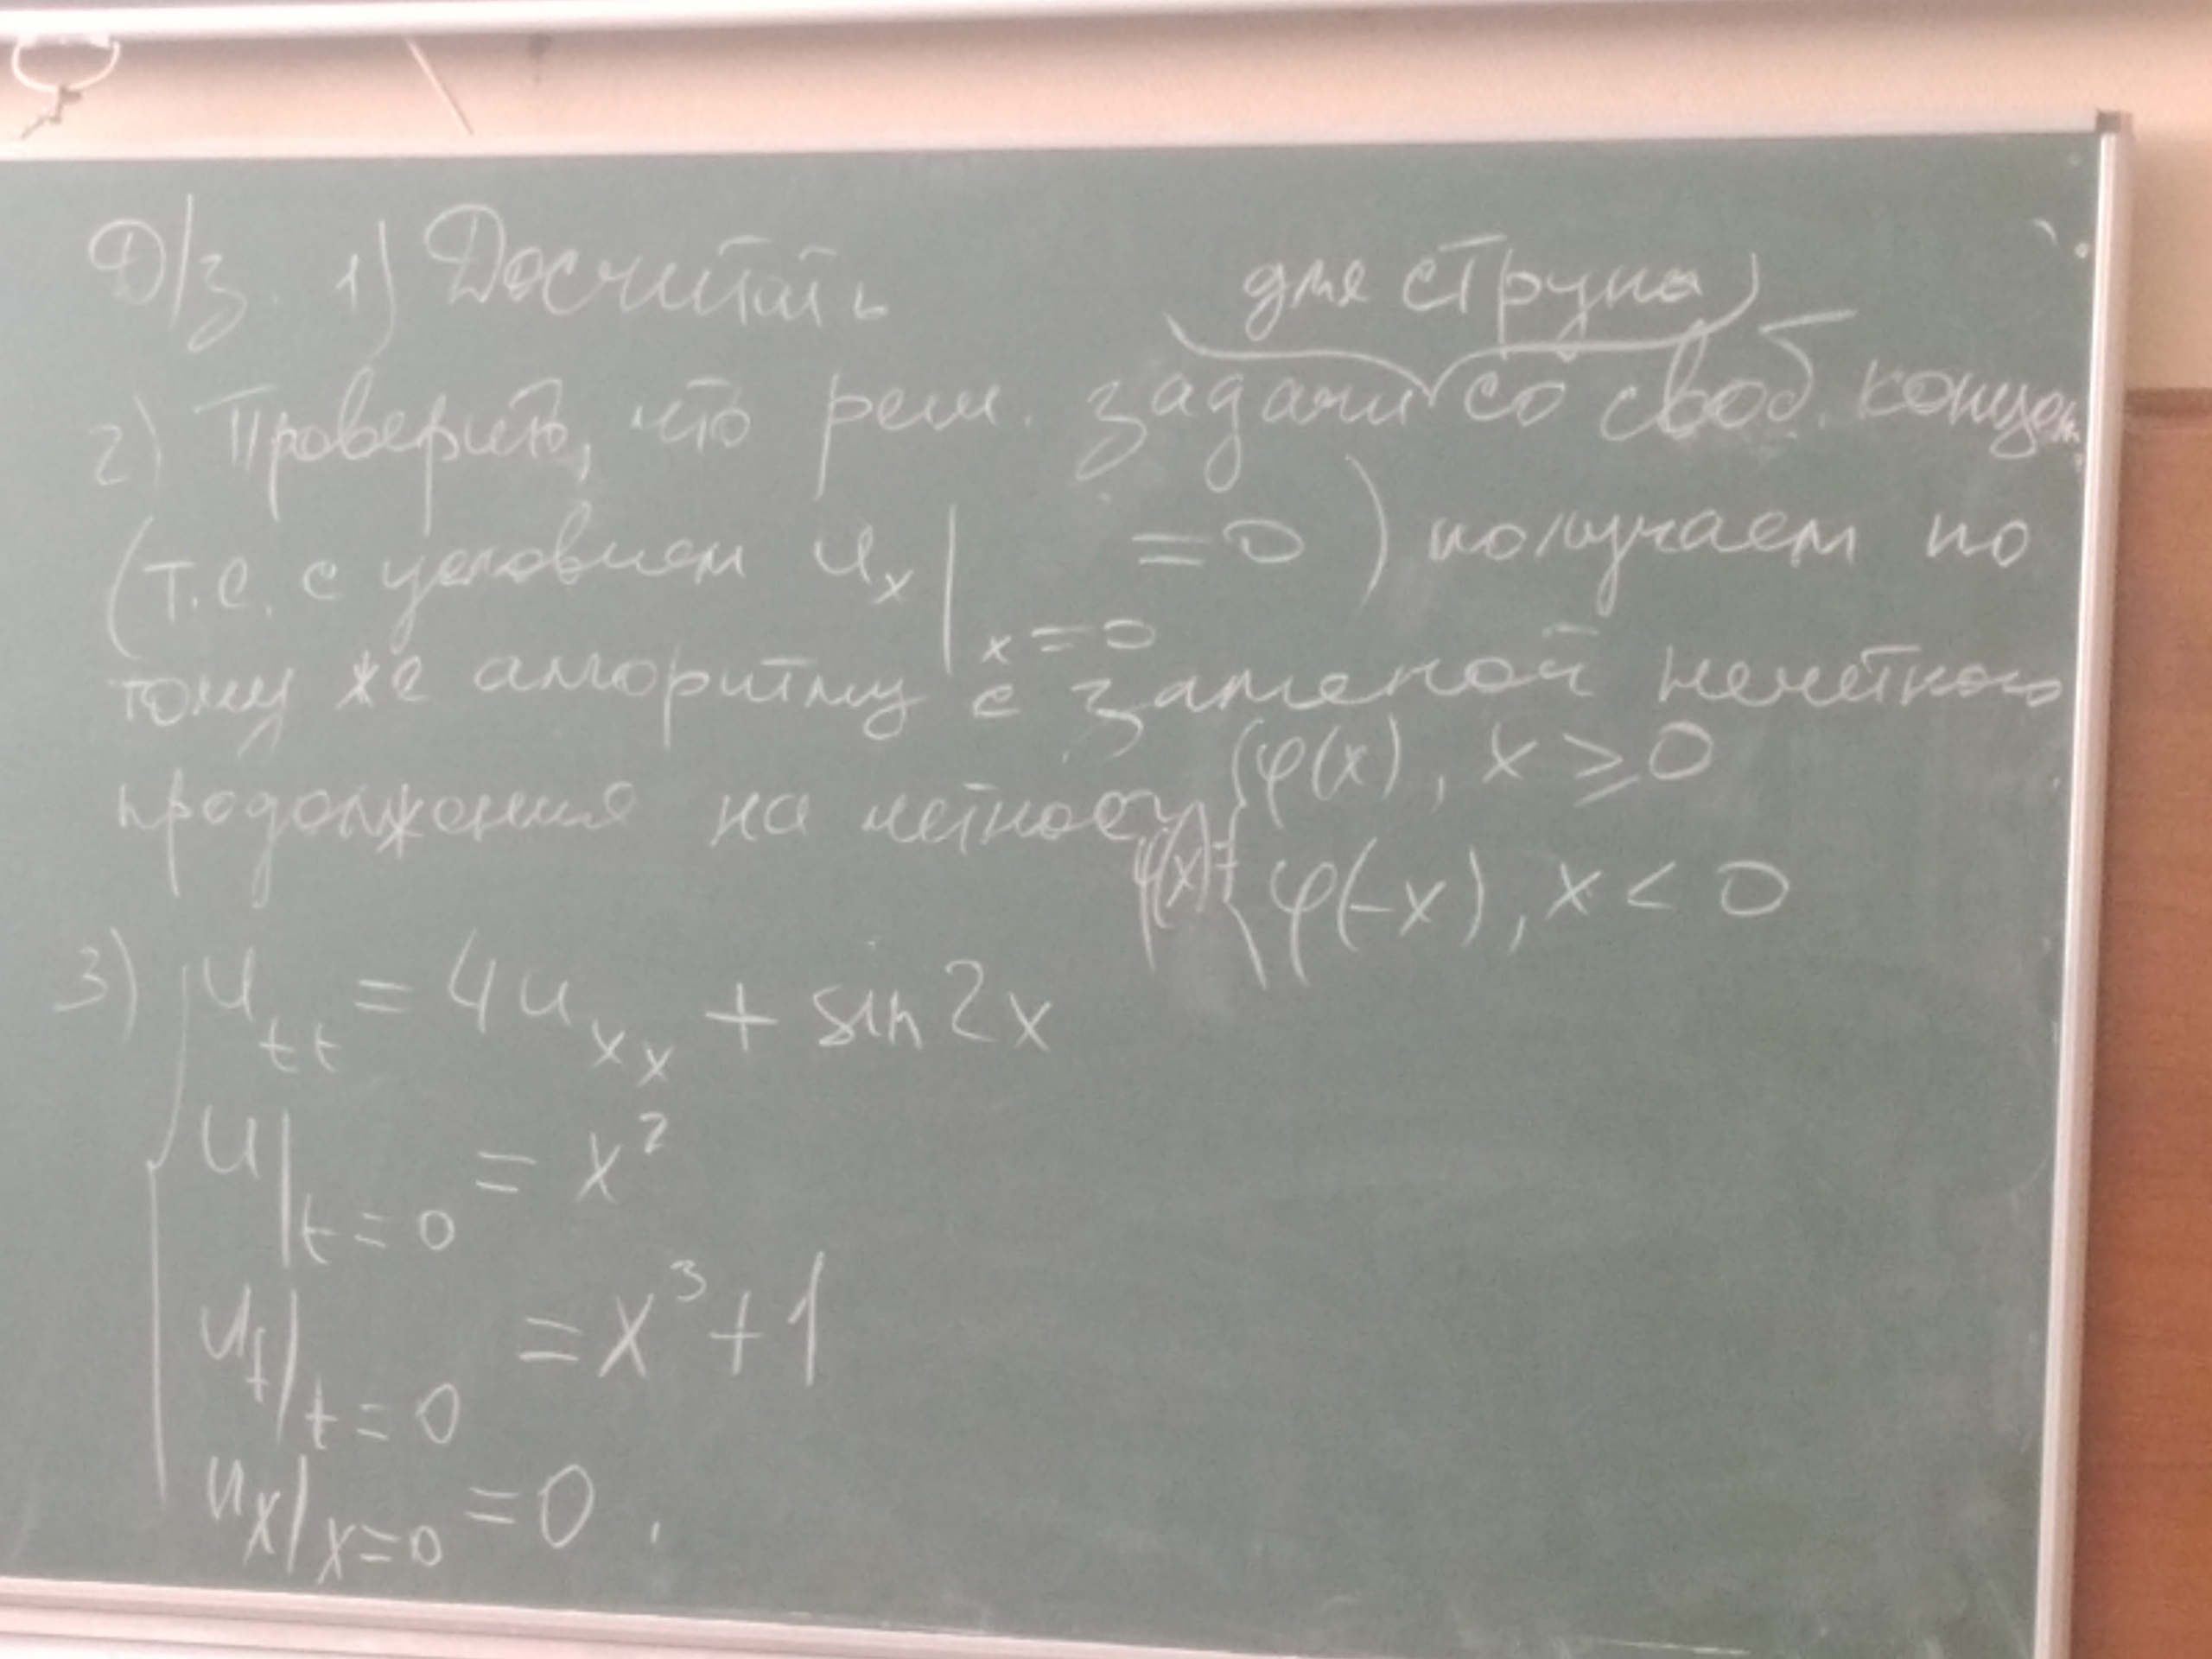 Д/з. 1) Досчитать
для струны
2) Проверить, что реш. задачи со своб. концом
(т.е. с условием u_x|_{x=0} = 0) получаем по
тому же алгоритму с заменой нечётного
продолжения на четное φ(x) = { φ(x), x ⩾ 0
φ(-x), x < 0
3) { u_{tt} = 4u_{xx} + sin 2x
u|_{t=0} = x²
u_t|_{t=0} = x³ + 1
u_x|_{x=0} = 0.